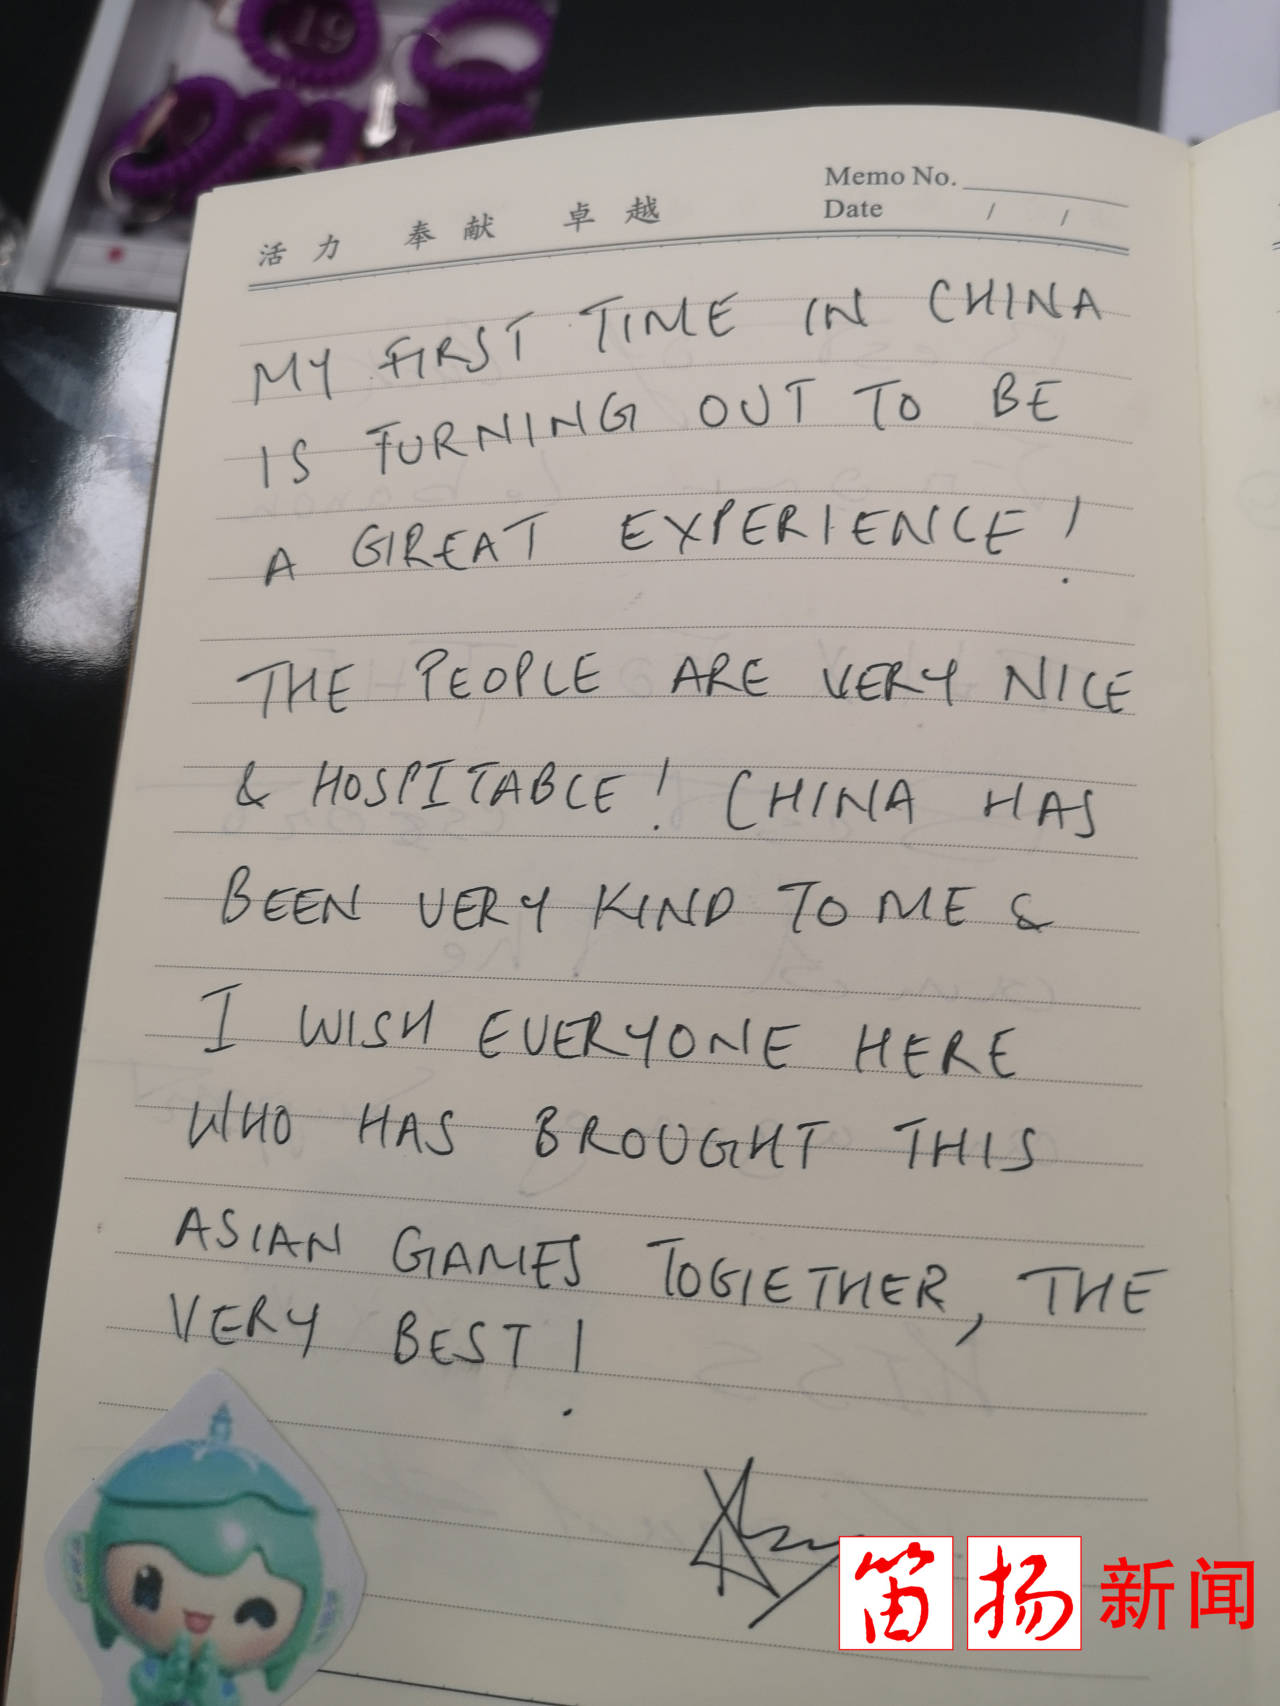 19
Memo No.
Date / /
活力 奉献 卓越
MY FIRST TIME IN CHINA
IS TURNING OUT TO BE
A GREAT EXPERIENCE!
THE PEOPLE ARE VERY NICE
& HOSPITABLE! CHINA HAS
BEEN VERY KIND TO ME &
I WISH EVERYONE HERE
WHO HAS BROUGHT THIS
ASIAN GAMES TOGETHER, THE
VERY BEST!
笛扬新闻